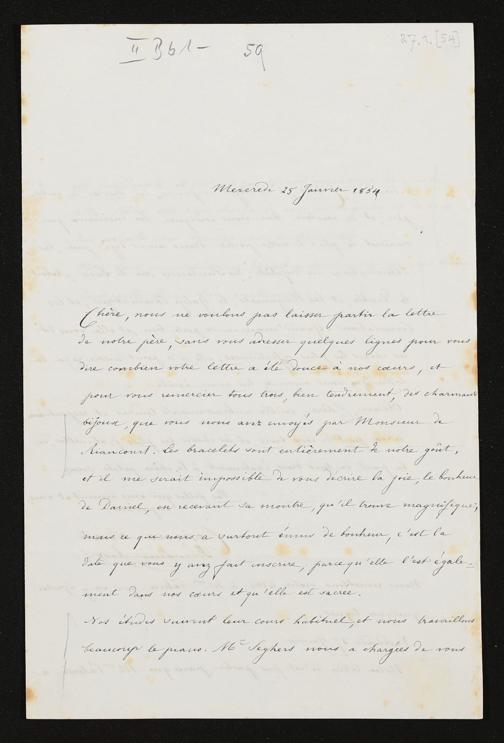 II Bb1- 59
27.2.[54]
Mercredi 25 Janvier 1854
Chère, nous ne voulons pas laisser partir la lettre
de notre père, sans vous adresser quelques lignes pour vous
dire combien votre lettre a été douce à nos cœurs, et
pour vous remercier tous trois, bien tendrement, des charmants
bijoux, que vous nous avez envoyés par Monsieur de
Riancourt. Les bracelets sont entièrement de notre goût,
et il me serait impossible de vous décrire la joie, le bonheur
de Daniel, en recevant sa montre, qu'il trouve magnifique;
mais ce qui nous a surtout émus de bonheur, c'est la
date que vous y avez fait inscrire, parce qu'elle l'est égale-
ment dans nos cœurs et qu'elle est sacrée.
Nos études suivent leur cours habituel, et nous travaillons
beaucoup le piano. Mr Seghers nous a chargées de vous